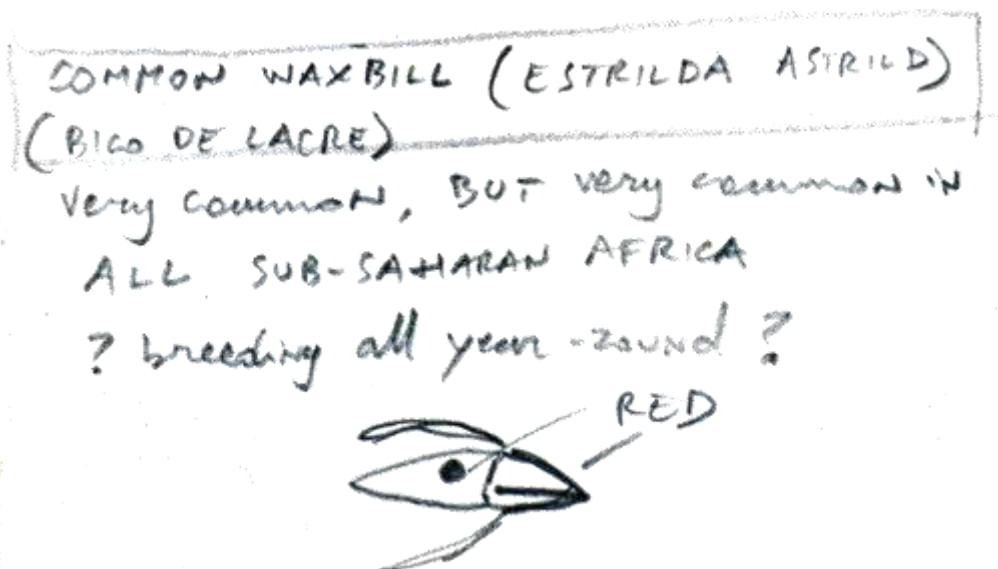 COMMON WAXBILL (ESTRILDA ASTRILD)
(BICO DE LACRE)
very common, BUT very common in
ALL SUB-SAHARAN AFRICA
? breeding all year-round ?
RED